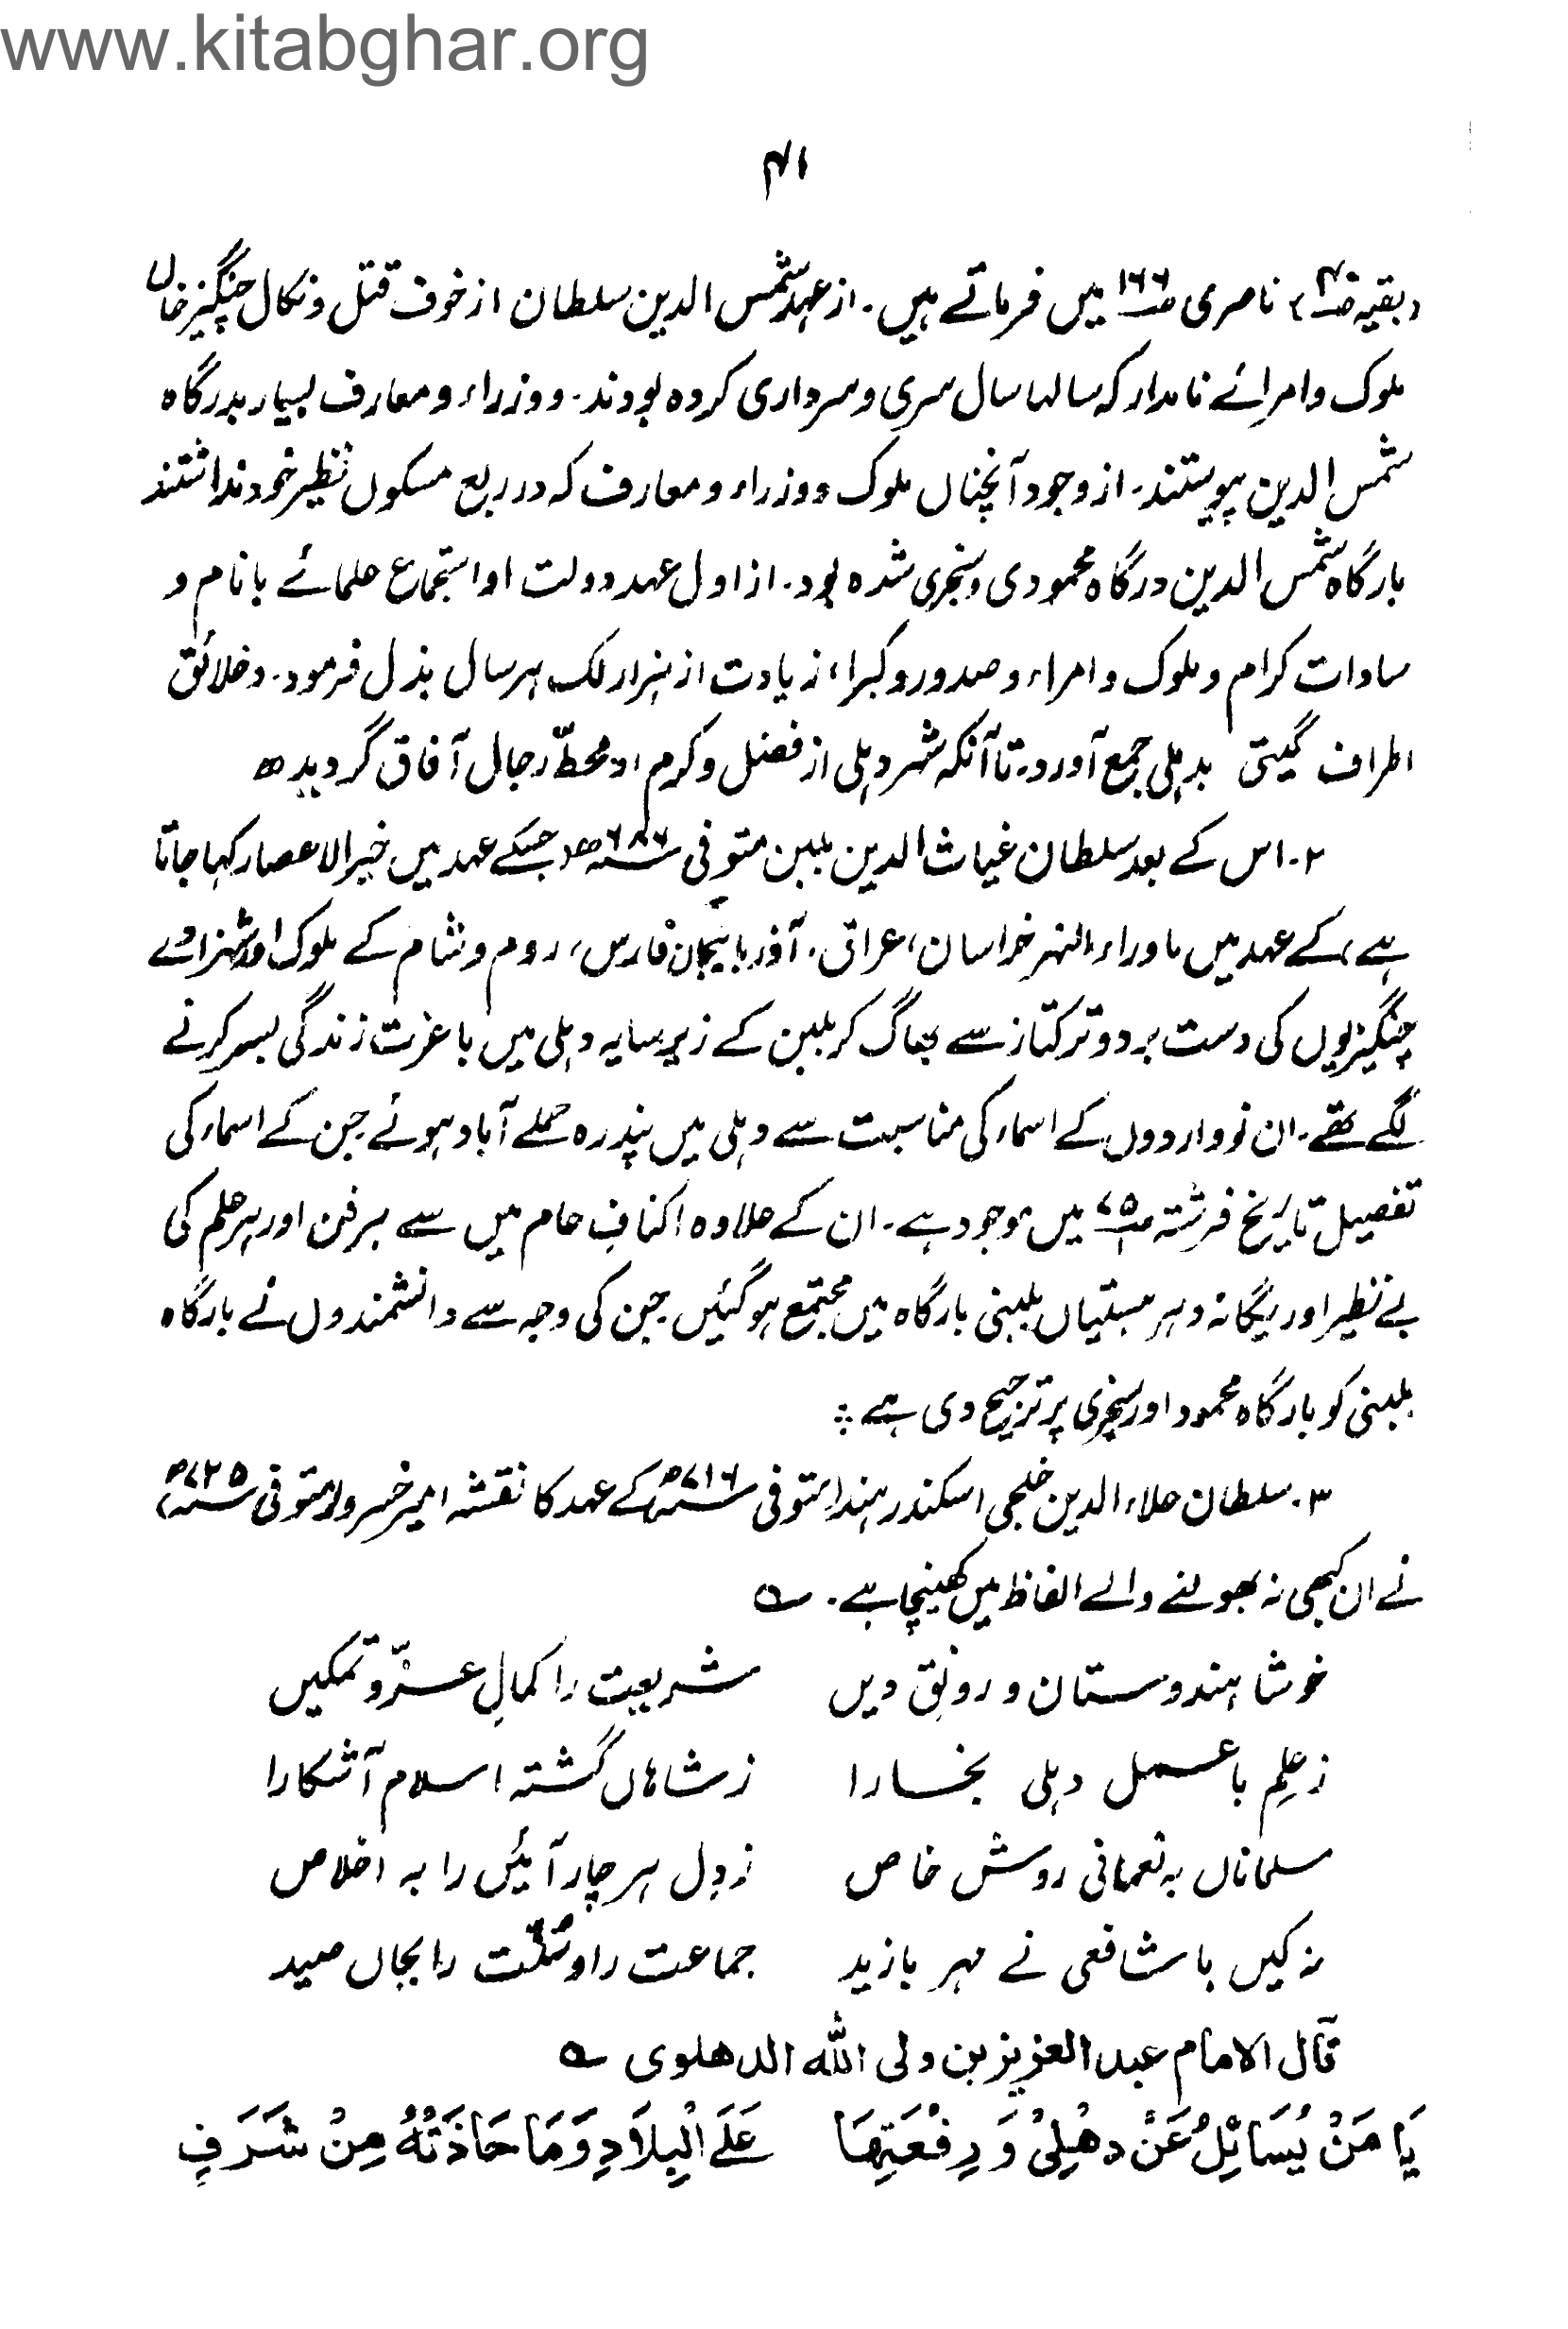 www.kitabghar.org
۴۱
(بقیہ ص۴۰) ناصری ص۱۶۶ میں فرماتے ہیں۔ از عہد شمس الدین سلطان از خوف قتل و نکال چنگیز خاں
ملوک و امرائے نامدار کہ سالہا سال سری و سرداری کردہ بودند۔ و وزراء و معارف بسیار بدرگاہ
شمس الدین پیوستند۔ از وجود آنچناں ملوک و وزراء و معارف کہ در ربع مسکوں نظیر خود نداشتند
بارگاہ شمس الدین درگاہ محمودی و سنجری شدہ بود۔ از اول عہد دولت او استجماع علمائے بانام و
سادات کرام و ملوک و امراء و صدور و کبراء زیادت از ہزار لک ہر سال بذل فرمود۔ و خلائق
اطراف گیتی بدہلی جمع آورد۔ تا آنکہ شہر دہلی از فضل و کرم او محطّ رجال آفاق گردید ھ
۲۔ اس کے بعد سلطان غیاث الدین بلبن متوفی ۶۸۶ھ (جسکے عہد میں خیر الاعصار کہا جاتا
ہے) کے عہد میں ماوراء النہر خراسان، عراق، آذربائیجان فارس، روم و شام کے ملوک اور شہزادے
چنگیزیوں کی دست برد و ترکتاز سے بھاگ کر بلبن کے زیر سایہ دہلی میں با عزت زندگی بسر کرنے
لگے تھے۔ ان نو واردوں کے اسماء کی مناسبت سے دہلی میں پندرہ محلے آباد ہوئے جن کے اسماء کی
تفصیل تاریخ فرشتہ ص۷۵ میں موجود ہے۔ ان کے علاوہ اکنافِ عالم میں سے ہر فن اور ہر علم کی
بے نظیر اور یگانہ دہر ہستیاں بلبنی بارگاہ میں مجتمع ہو گئیں جن کی وجہ سے دانشمندوں نے بارگاہ
بلبنی کو بارگاہ محمود اور سنجری پر ترجیح دی ہے ؞
۳۔ سلطان علاء الدین خلجی اسکندر ہند (متوفی ۷۱۶ھ) کے عہد کا نقشہ امیر خسرو (متوفی ۷۲۵ھ)
نے ان کبھی نہ بھولنے والے الفاظ میں کھینچا ہے۔ ؎
خوشا ہندوستان و رونق دیں شریعت را کمالِ عزّ و تمکیں
ز علِم باعمل دہلی بخارا ز شاہاں گشتہ اسلام آشکارا
مسلماناں بہ نعمانی روش خاص ز دِل ہر چار آئیں را بہ اخلاص
نہ کیں با شافعی نے مہر با زید جماعت را و سُنّت را بجاں صید
قال الامام عبد العزیز بن ولی اللہ الدھلوی ؎
یَا مَنْ یُسَائِلُ عَنْ دِهْلِیْ وَ رِفْعَتِهَا عَلَى الْبِلَادِ وَمَا حَاذَتْهُ مِنْ شَرَفٍ